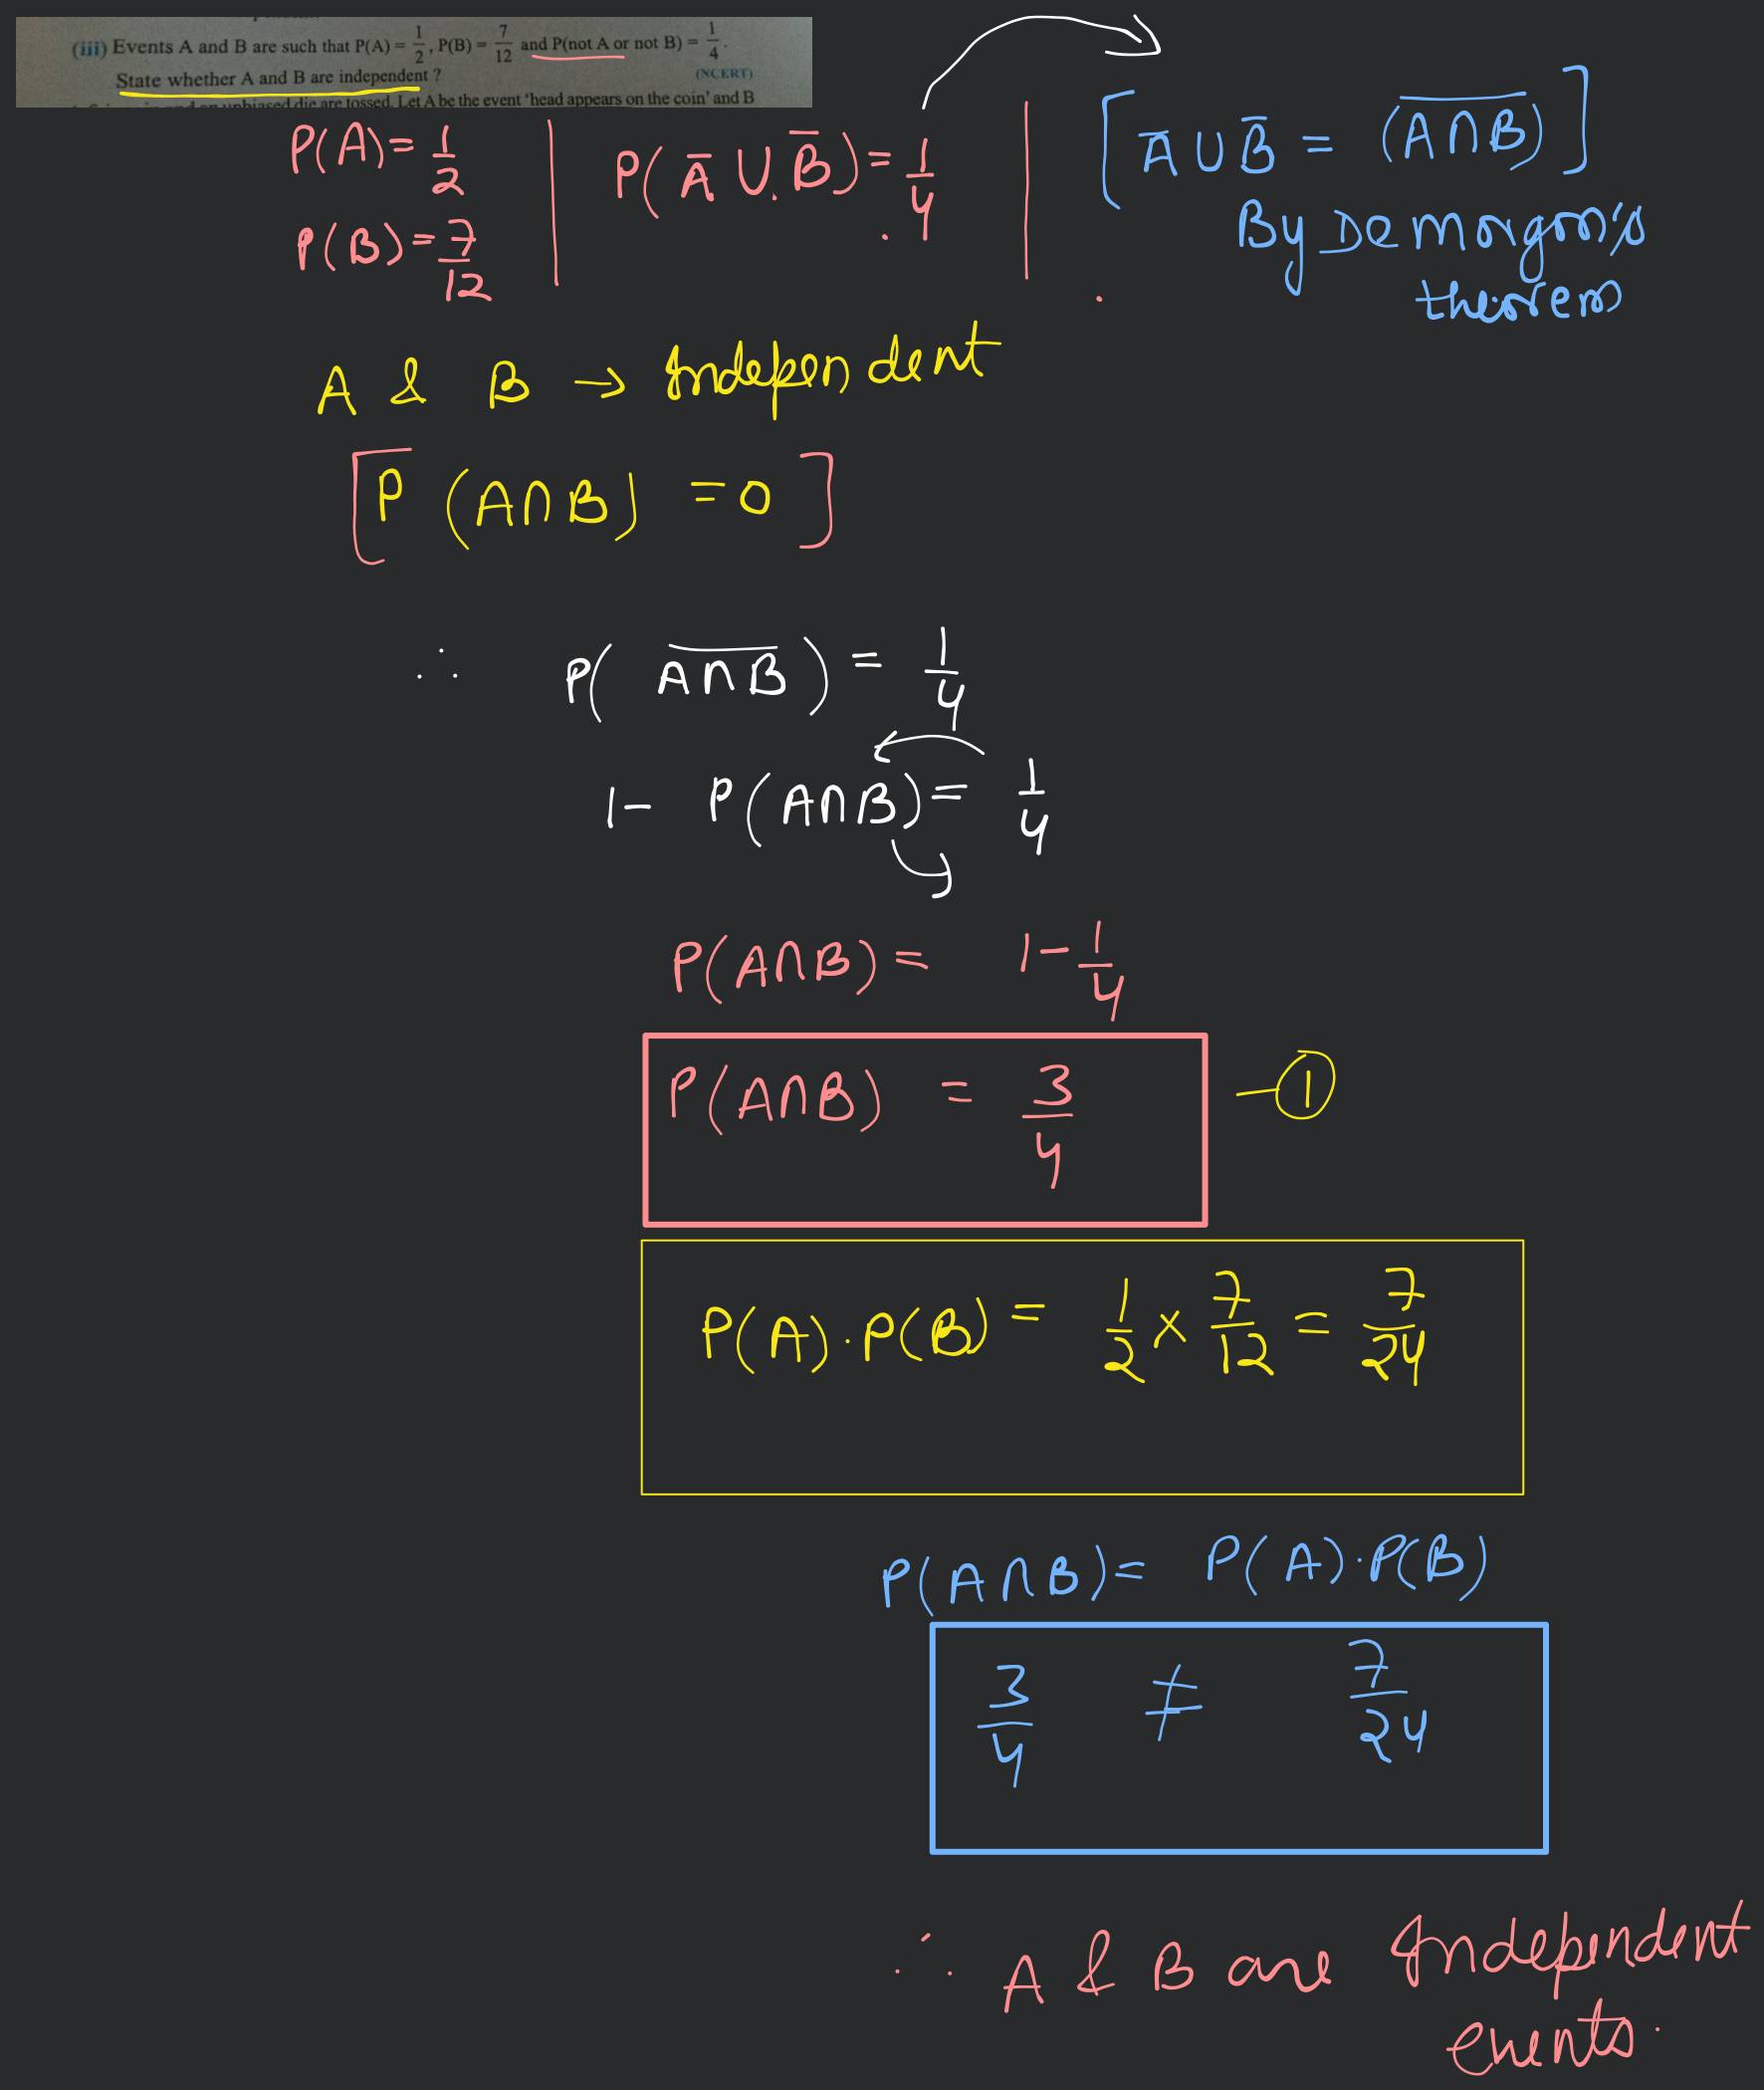 (iii) Events A and B are such that P(A) = 1/2, P(B) = 7/12 and P(not A or not B) = 1/4.
State whether A and B are independent ? (NCERT)
unbiased die are tossed. Let A be the event 'head appears on the coin' and B
P(A) = 1/2
P(B) = 7/12
P(A̅ ∪ B̅) = 1/4
[A̅ ∪ B̅ = (A̅∩̅B̅)]
By Demorgon's
theorem
A & B → Independent
[P (A∩B) = 0]
∴ P(A̅∩̅B̅) = 1/4
1 - P(A∩B) = 1/4
P(A∩B) = 1 - 1/4
P(A∩B) = 3/4 —①
P(A)·P(B) = 1/2 × 7/12 = 7/24
P(A∩B) = P(A)·P(B)
3/4 ≠ 7/24
∴ A & B are Independent
events.